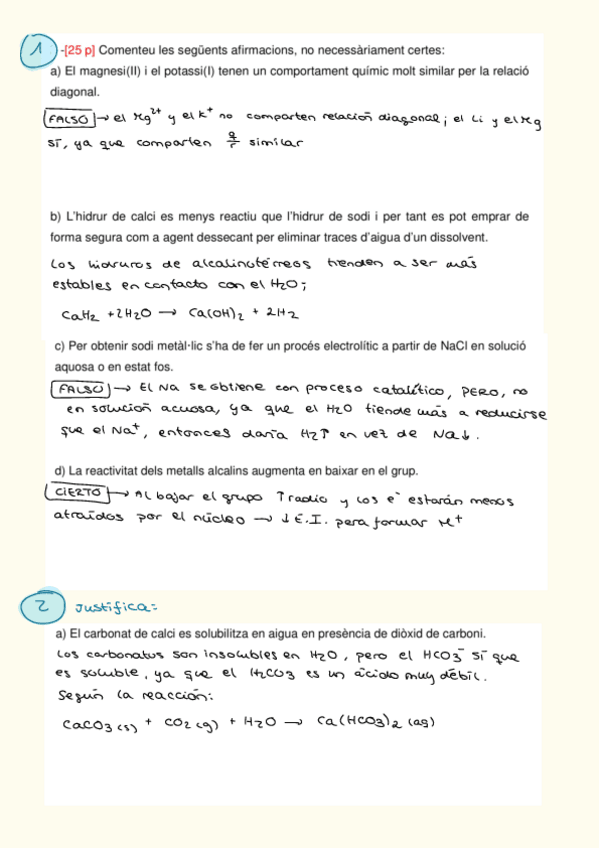 1 -[25 p] Comenteu les següents afirmacions, no necessàriament certes:
a) El magnesi(II) i el potassi(I) tenen un comportament químic molt similar per la relació
diagonal.
FALSO → el Mg²⁺ y el K⁺ no comparten relación diagonal; el Li y el Mg
sí, ya que comparten q/r similar
b) L'hidrur de calci es menys reactiu que l'hidrur de sodi i per tant es pot emprar de
forma segura com a agent dessecant per eliminar traces d'aigua d'un dissolvent.
Los hidruros de alcalinotérreos tienden a ser más
estables en contacto con el H₂O;
CaH₂ + 2H₂O → Ca(OH)₂ + 2H₂
c) Per obtenir sodi metàl·lic s'ha de fer un procés electrolític a partir de NaCl en solució
aquosa o en estat fos.
FALSO → El Na se obtiene con proceso catalítico, PERO, no
en solución acuosa, ya que el H₂O tiende más a reducirse
que el Na⁺, entonces daría H₂↑ en vez de Na↓.
d) La reactivitat dels metalls alcalins augmenta en baixar en el grup.
CIERTO → Al bajar el grupo ↑ radio y los e⁻ estarán menos
atraídos por el núcleo → ↓ E.I. pera formar M⁺
2 Justifica:
a) El carbonat de calci es solubilitza en aigua en presència de diòxid de carboni.
Los carbonatos son insolubles en H₂O, pero el HCO₃⁻ sí que
es soluble, ya que el H₂CO₃ es un ácido muy débil.
Según la reacción:
CaCO₃ (s) + CO₂ (g) + H₂O → Ca(HCO₃)₂ (aq)